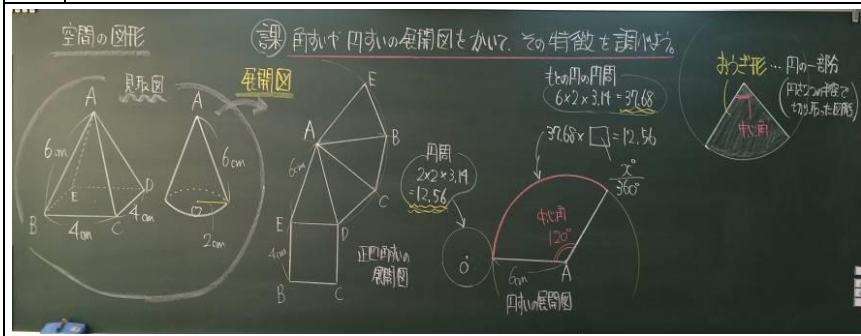 空間の図形
課 角すいや円すいの展開図をかいて、その特徴を調べよう。
見取図
A
6cm
E
D
B
4cm
C
4cm
A
6cm
O
2cm
展開図
E
A
B
6cm
C
E
D
4cm
B
C
正四角すいの
展開図
円周
2×2×3.14
=12.56
O
もとの円の円周
6×2×3.14=37.68
37.68×□=12.56
x°
360°
中心角
120°
6cm
A
円すいの展開図
おうぎ形…円の一部分
(円を2つの半径で
切り取った図形)
中心角